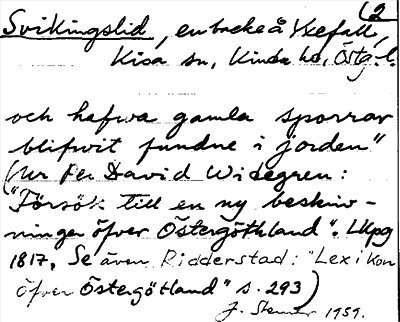 (2
Svikingslid, en backe å Yxefall,
Kisa sn, Kinda hd, Östg. l.
och hafwa gamla sporrar
blifwit fundne i jorden"
(Ur Per David Widegren:
"Försök till en ny beskriv-
ningen öfver Östergöthland". Lkpg
1817, Se även Ridderstad: "Lexikon
öfver Östergötland" s. 293)
J. 1959.